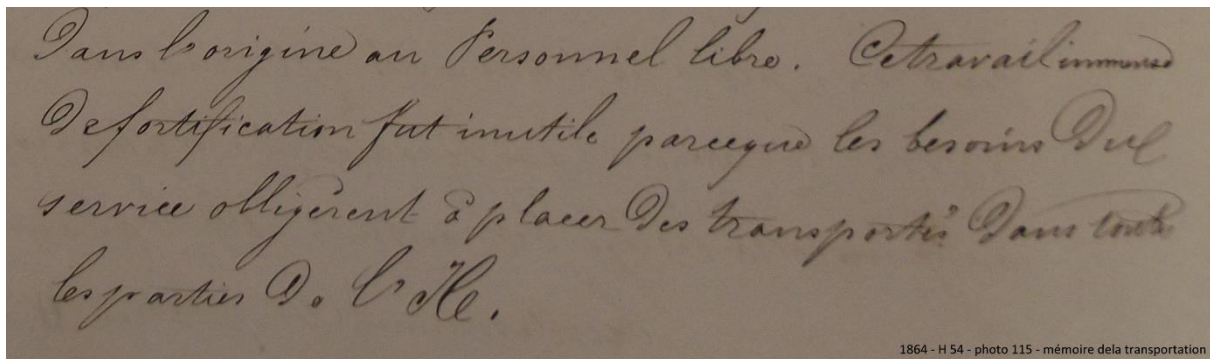 Dans l'origine au Personnel libre. Ce travail immense
De fortification fut inutile parceque les besoins Du
service obligèrent à placer Des transportés Dans toutes
les parties De l'Ile.
1864 - H 54 - photo 115 - mémoire dela transportation